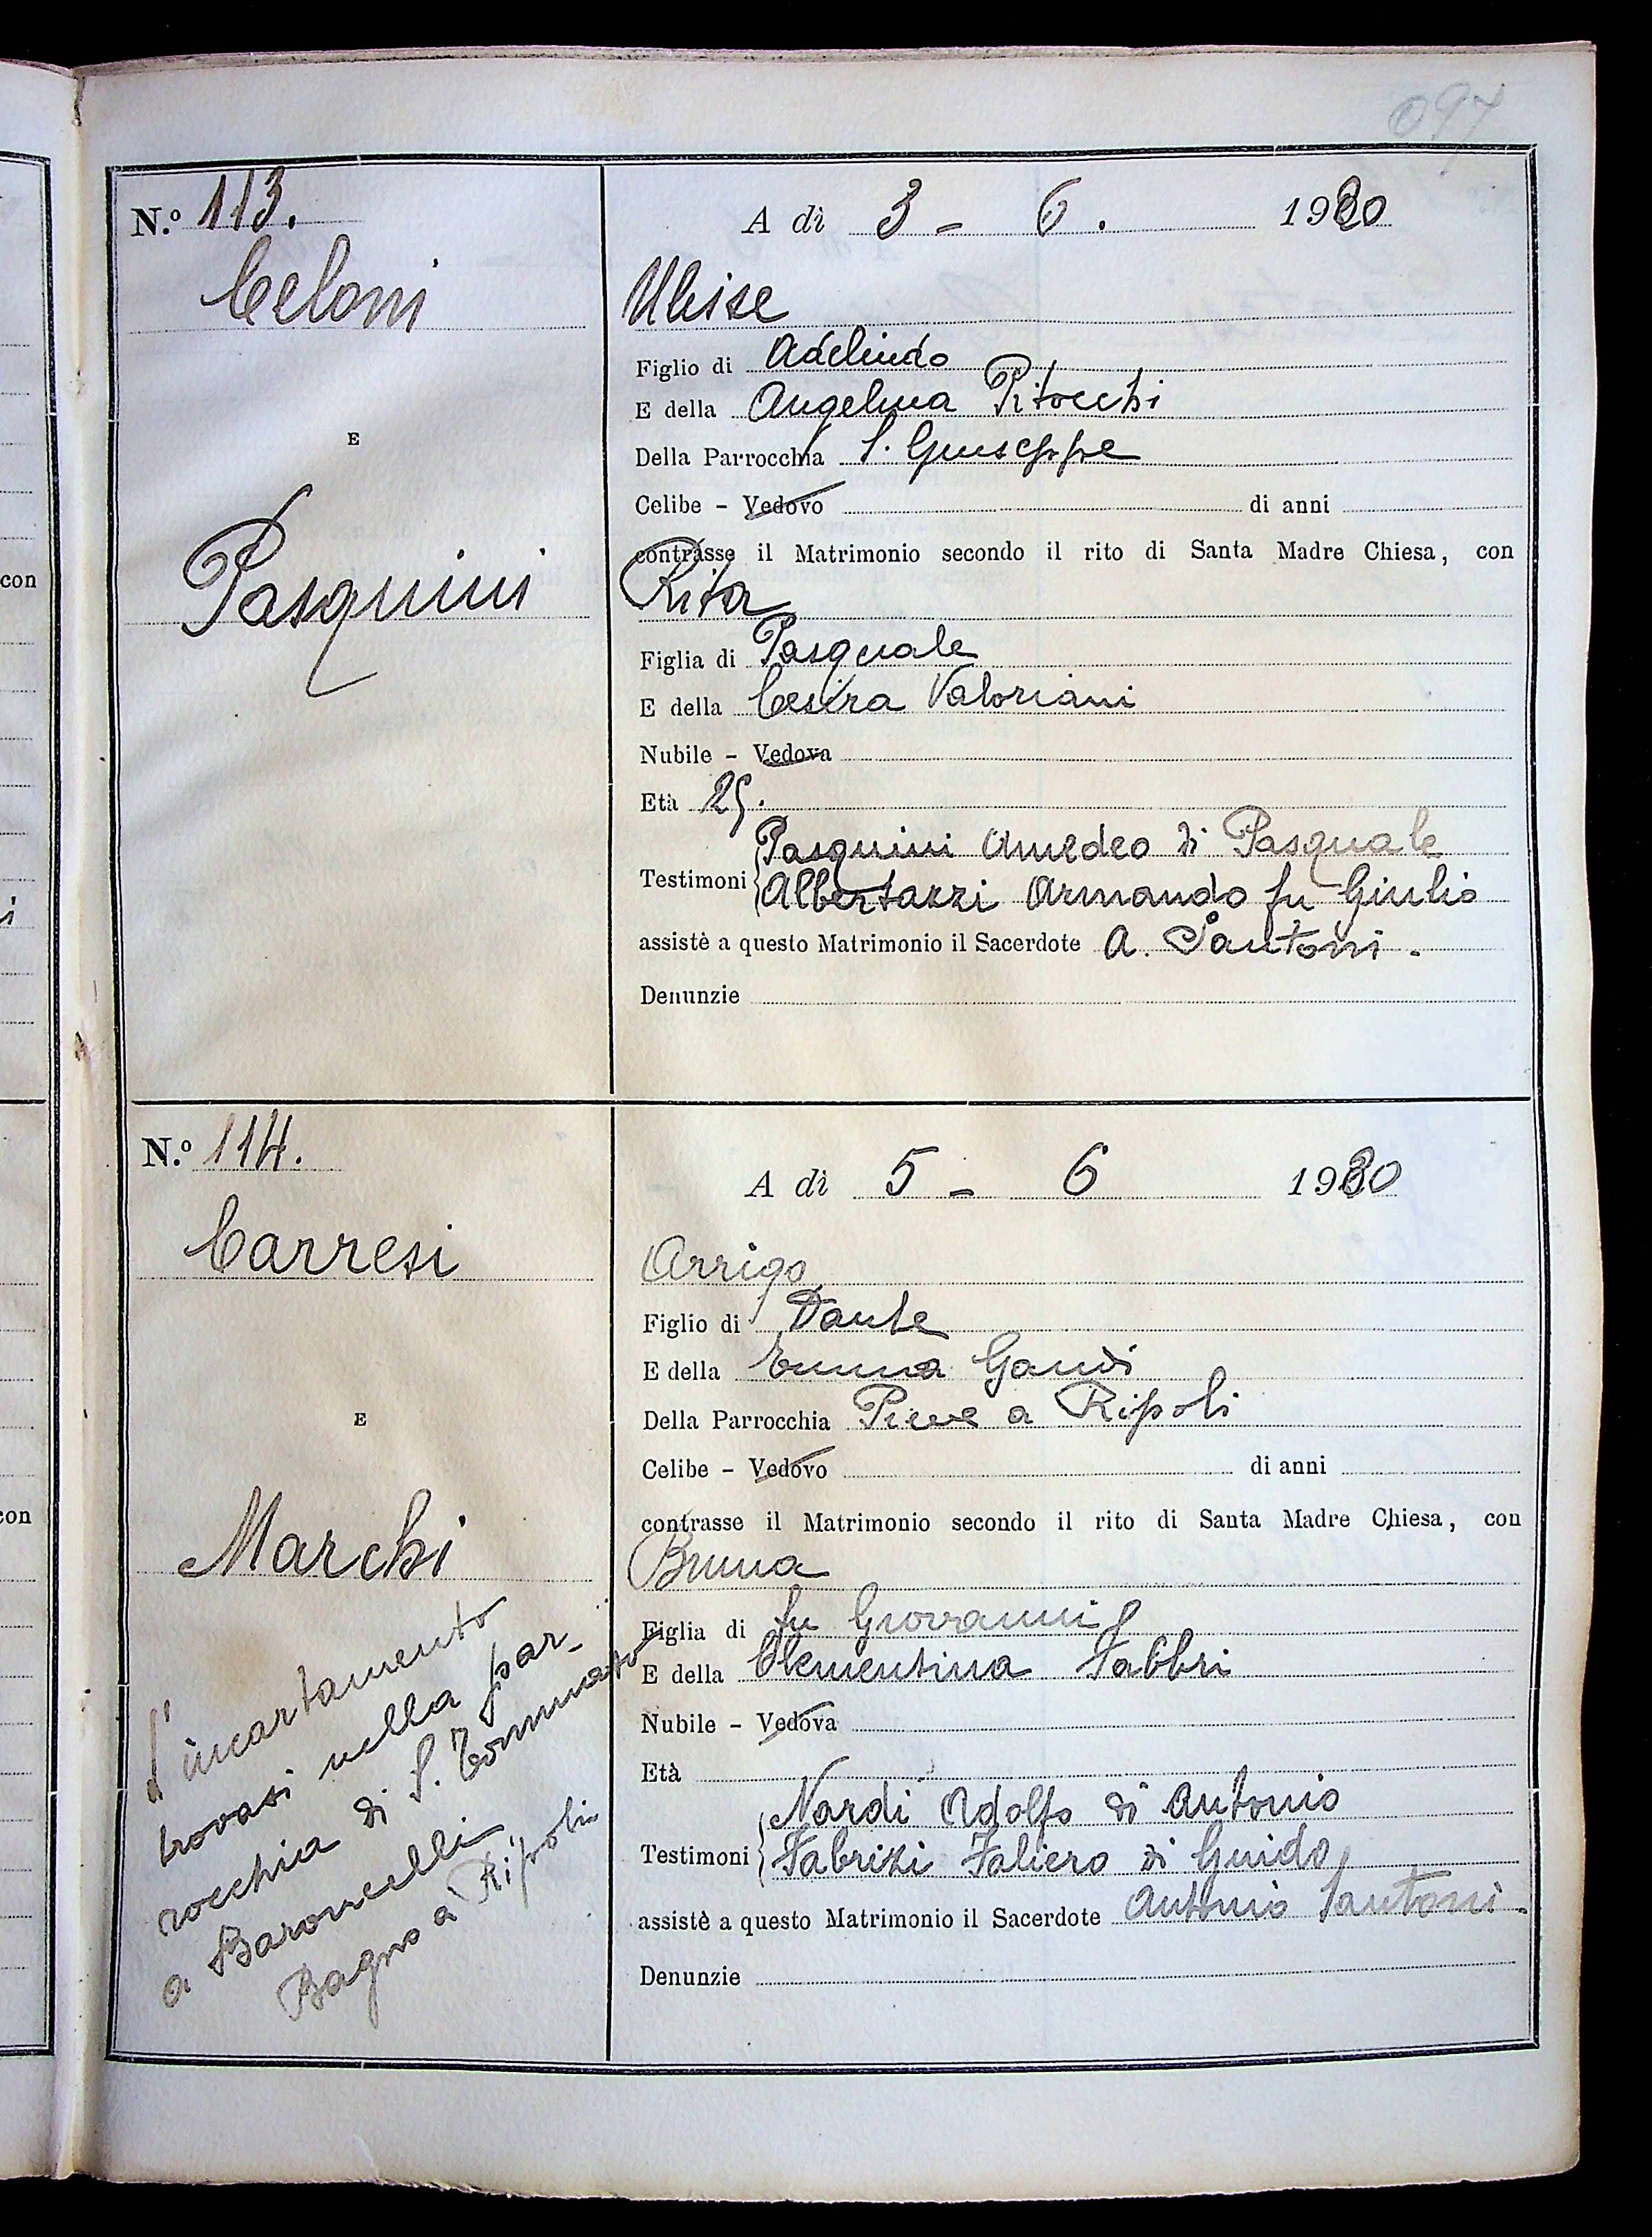 097
N.o 113.
A dì 3 - 6. 1930
Celoni
E
Pasquini
Ulisse
Figlio di Adelindo
E della Angelina Pitocchi
Della Parrocchia S. Giuseppe
Celibe - Vedovo di anni
contrasse il Matrimonio secondo il rito di Santa Madre Chiesa, con
Rita
Figlia di Pasquale
E della Cesira Valoriani
Nubile - Vedova
Età 25.
Pasquini Amedeo di Pasquale
Testimoni
Albertazzi Armando fu Giulio
assistè a questo Matrimonio il Sacerdote A. Santoni.
Denunzie
N.o 114.
A dì 5 - 6 1930
Carresi
E
Marchi
l'incartamento
trovasi nella par-
rocchia di S. Tommaso
a Baroncelli
Bagno a Ripoli
Arrigo
Figlio di Dante
E della Emma Gandi
Della Parrocchia Pieve a Ripoli
Celibe - Vedovo di anni
contrasse il Matrimonio secondo il rito di Santa Madre Chiesa, con
Bruna
Figlia di fu Giovanni
E della Clementina Fabbri
Nubile - Vedova
Età
Nardi Adolfo di Antonio
Testimoni
Fabrizi Faliero di Guido
assistè a questo Matrimonio il Sacerdote Antonio Santoni.
Denunzie
con
i
con